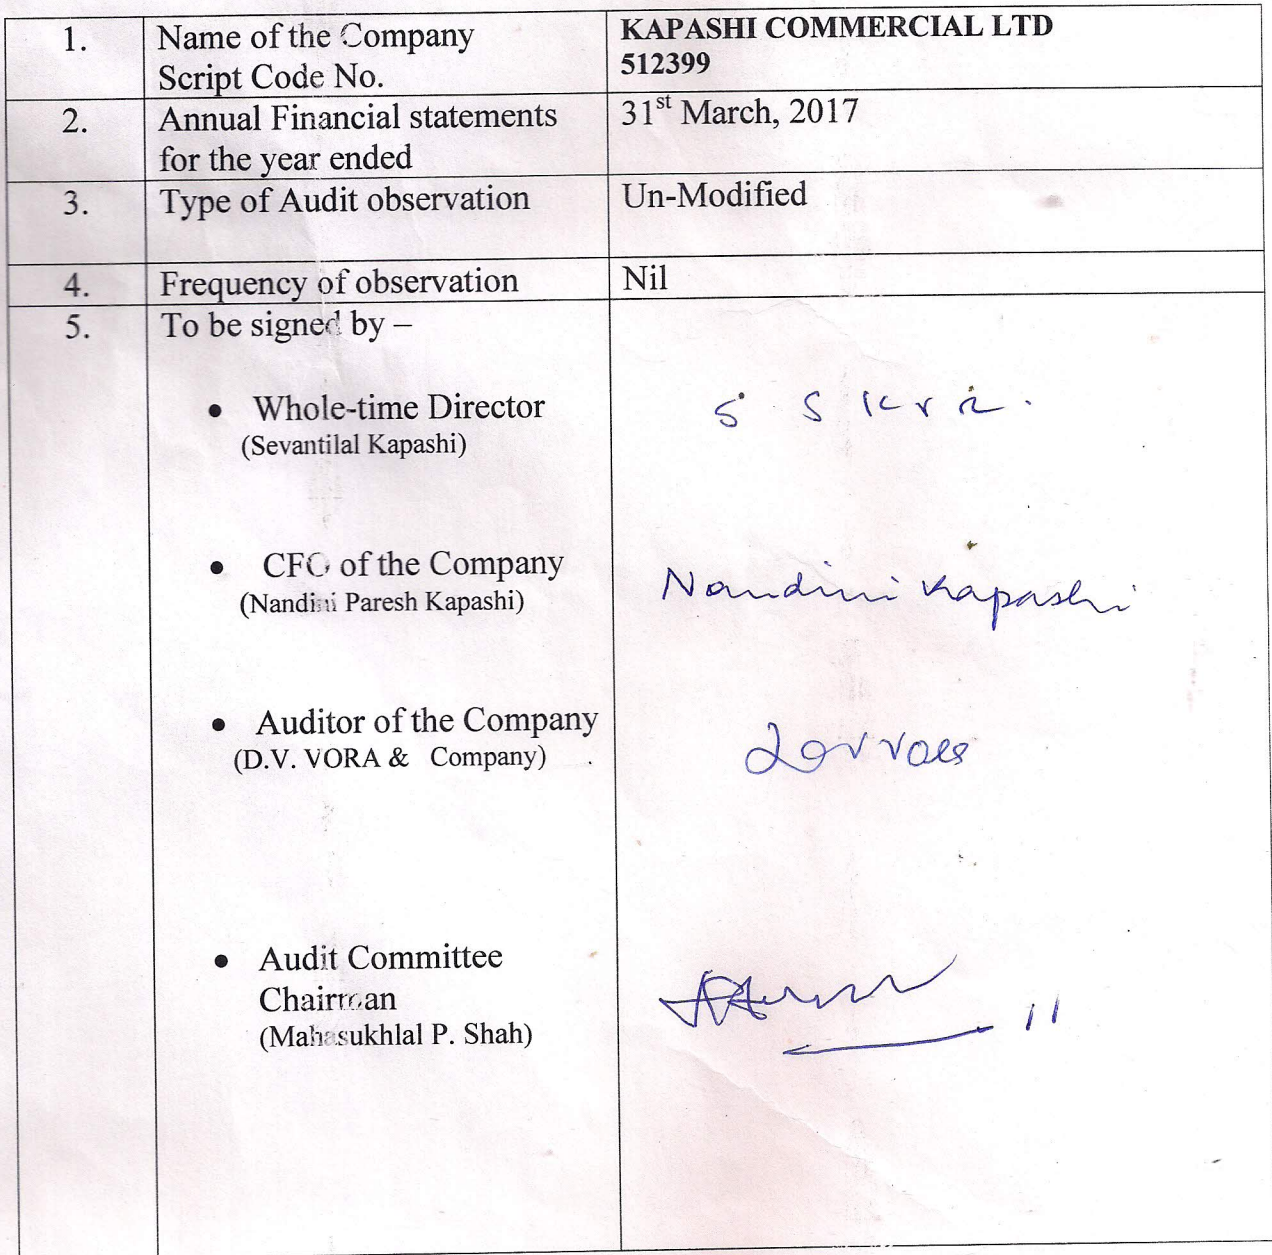 1.
Name of the Company
Script Code No.
KAPASHI COMMERCIAL LTD
512399
2.
Annual Financial statements
for the year ended
31st March, 2017
3.
Type of Audit observation
Un-Modified
4.
Frequency of observation
Nil
5.
To be signed by –
• Whole-time Director
(Sevantilal Kapashi)
• CFO of the Company
(Nandini Paresh Kapashi)
Nandini Kapashi
• Auditor of the Company
(D.V. VORA & Company)
• Audit Committee
Chairman
(Mahasukhlal P. Shah)